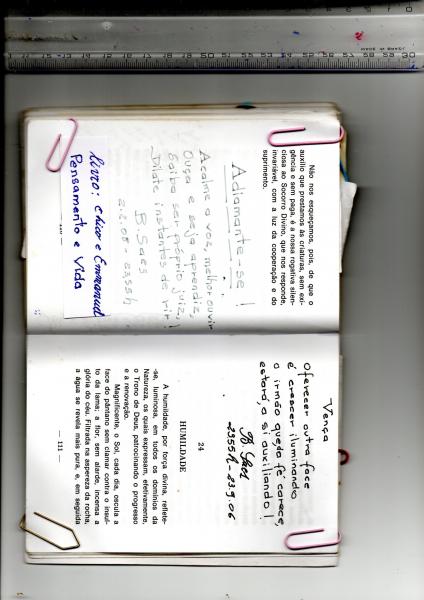 MADE IN BRAZIL
Não nos esqueçamos, pois, de que o
auxílio que prestamos às criaturas, sem exi-
gência e sem paga, é a nossa rogativa silen-
ciosa ao Socorro Divino, que nos responde,
invariável, com a luz da cooperação e do
suprimento.
Adiamante-se!
Acalme a voz, melhor ouvir
Ouça e seja aprendiz,
Saiba ser próprio juiz,
Dilate instantes de rir!
B. Saes
2.2.08 - 0355h
Livro: Chico e Emmanuel
Pensamento e Vida
Vença
Oferecer outra face
é crescer iluminando
o irmão que da fé carece,
estará a si auxiliando!
B. Saes
2355h - 23.9.06
24
HUMILDADE
A humildade, por força divina, reflete-
-se, luminosa, em todos os domínios da
Natureza, os quais expressam, efetivamente,
o Trono de Deus, patrocinando o progresso
e a renovação.
Magnificente, o Sol, cada dia, oscula a
face do pântano sem clamar contra o insul-
to da lama; a flor, sem alarde, incensa a
glória do céu. Filtrada na aspereza da rocha,
a água se revela mais pura, e, em seguida
— 111 —